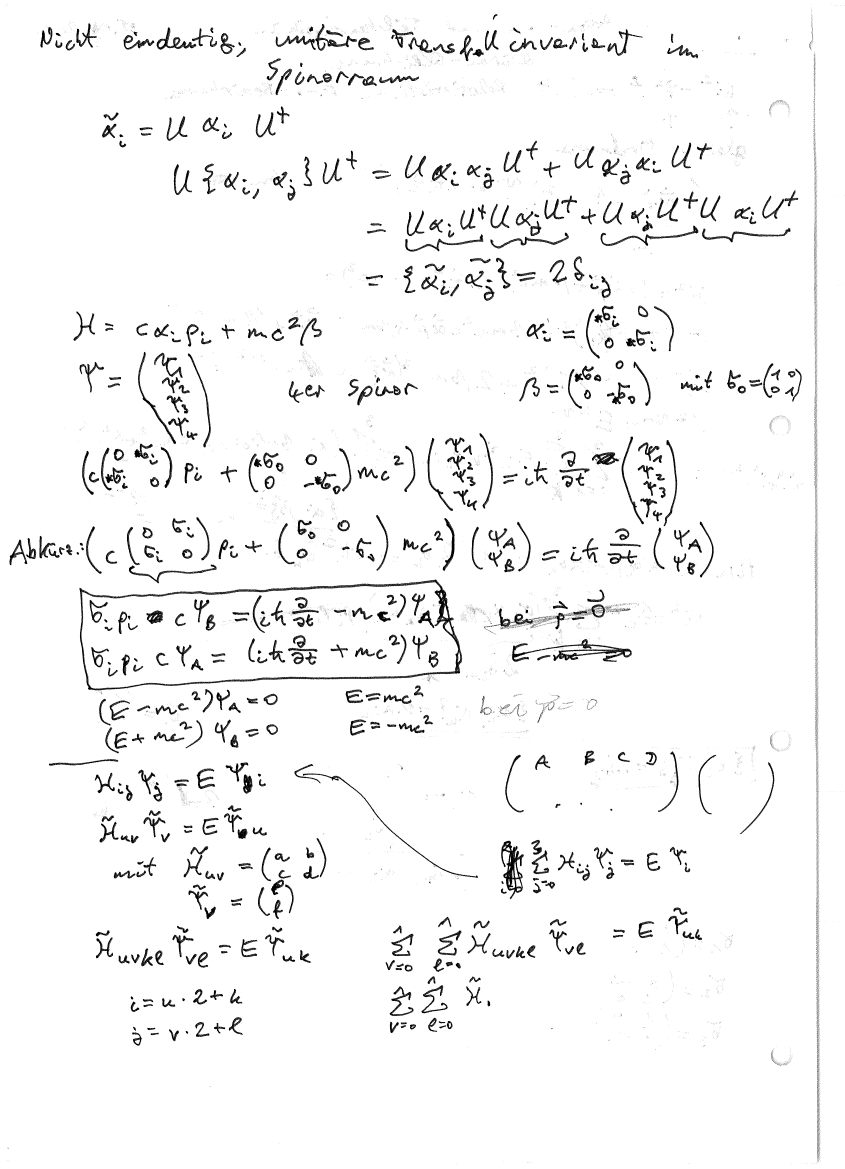 Nicht eindeutig, unitäre Transf. invariant im
Spinorraum
α̃ᵢ = U αᵢ U†
U {αᵢ, αⱼ} U† = U αᵢ αⱼ U† + U αⱼ αᵢ U†
= U αᵢ U† U αⱼ U† + U αⱼ U† U αᵢ U†
= {α̃ᵢ, α̃ⱼ} = 2δᵢⱼ
H = cαᵢpᵢ + mc²β αᵢ = (σᵢ 0; 0 σᵢ)
Ψ = (Ψ₁; Ψ₂; Ψ₃; Ψ₄) 4er Spinor β = (σ₀ 0; 0 -σ₀) mit σ₀ = (1 0; 0 1)
(c(0 σᵢ; σᵢ 0) pᵢ + (σ₀ 0; 0 -σ₀) mc²) (Ψ₁; Ψ₂; Ψ₃; Ψ₄) = iħ ∂/∂t (Ψ₁; Ψ₂; Ψ₃; Ψ₄)
Abkürz.: (c (0 σᵢ; σᵢ 0) pᵢ + (σ₀ 0; 0 -σ₀) mc²) (Ψ_A; Ψ_B) = iħ ∂/∂t (Ψ_A; Ψ_B)
σᵢ pᵢ c Ψ_B = (iħ ∂/∂t - mc²) Ψ_A bei p⃗ = 0⃗
σᵢ pᵢ c Ψ_A = (iħ ∂/∂t + mc²) Ψ_B E - mc² = 0
(E - mc²) Ψ_A = 0 E = mc² bei p⃗ = 0
(E + mc²) Ψ_B = 0 E = -mc²
Hᵢⱼ Ψⱼ = E Ψᵢ (A B C D . . . ) ( )
H̃ᵤᵥ Ψ̃ᵥ = E Ψ̃ᵤ
mit H̃ᵤᵥ = (a b; c d) Σ_{j=0}^{3} Hᵢⱼ Ψⱼ = E Ψᵢ
Ψ̃ᵥ = (e; f)
H̃_{uvkl} Ψ̃_{vl} = E Ψ̃_{uk} Σ_{v=0}^{1} Σ_{l=0}^{1} H̃_{uvkl} Ψ̃_{vl} = E Ψ̃_{uk}
i = u · 2 + k Σ_{v=0}^{1} Σ_{l=0}^{1} H̃.
j = v · 2 + l